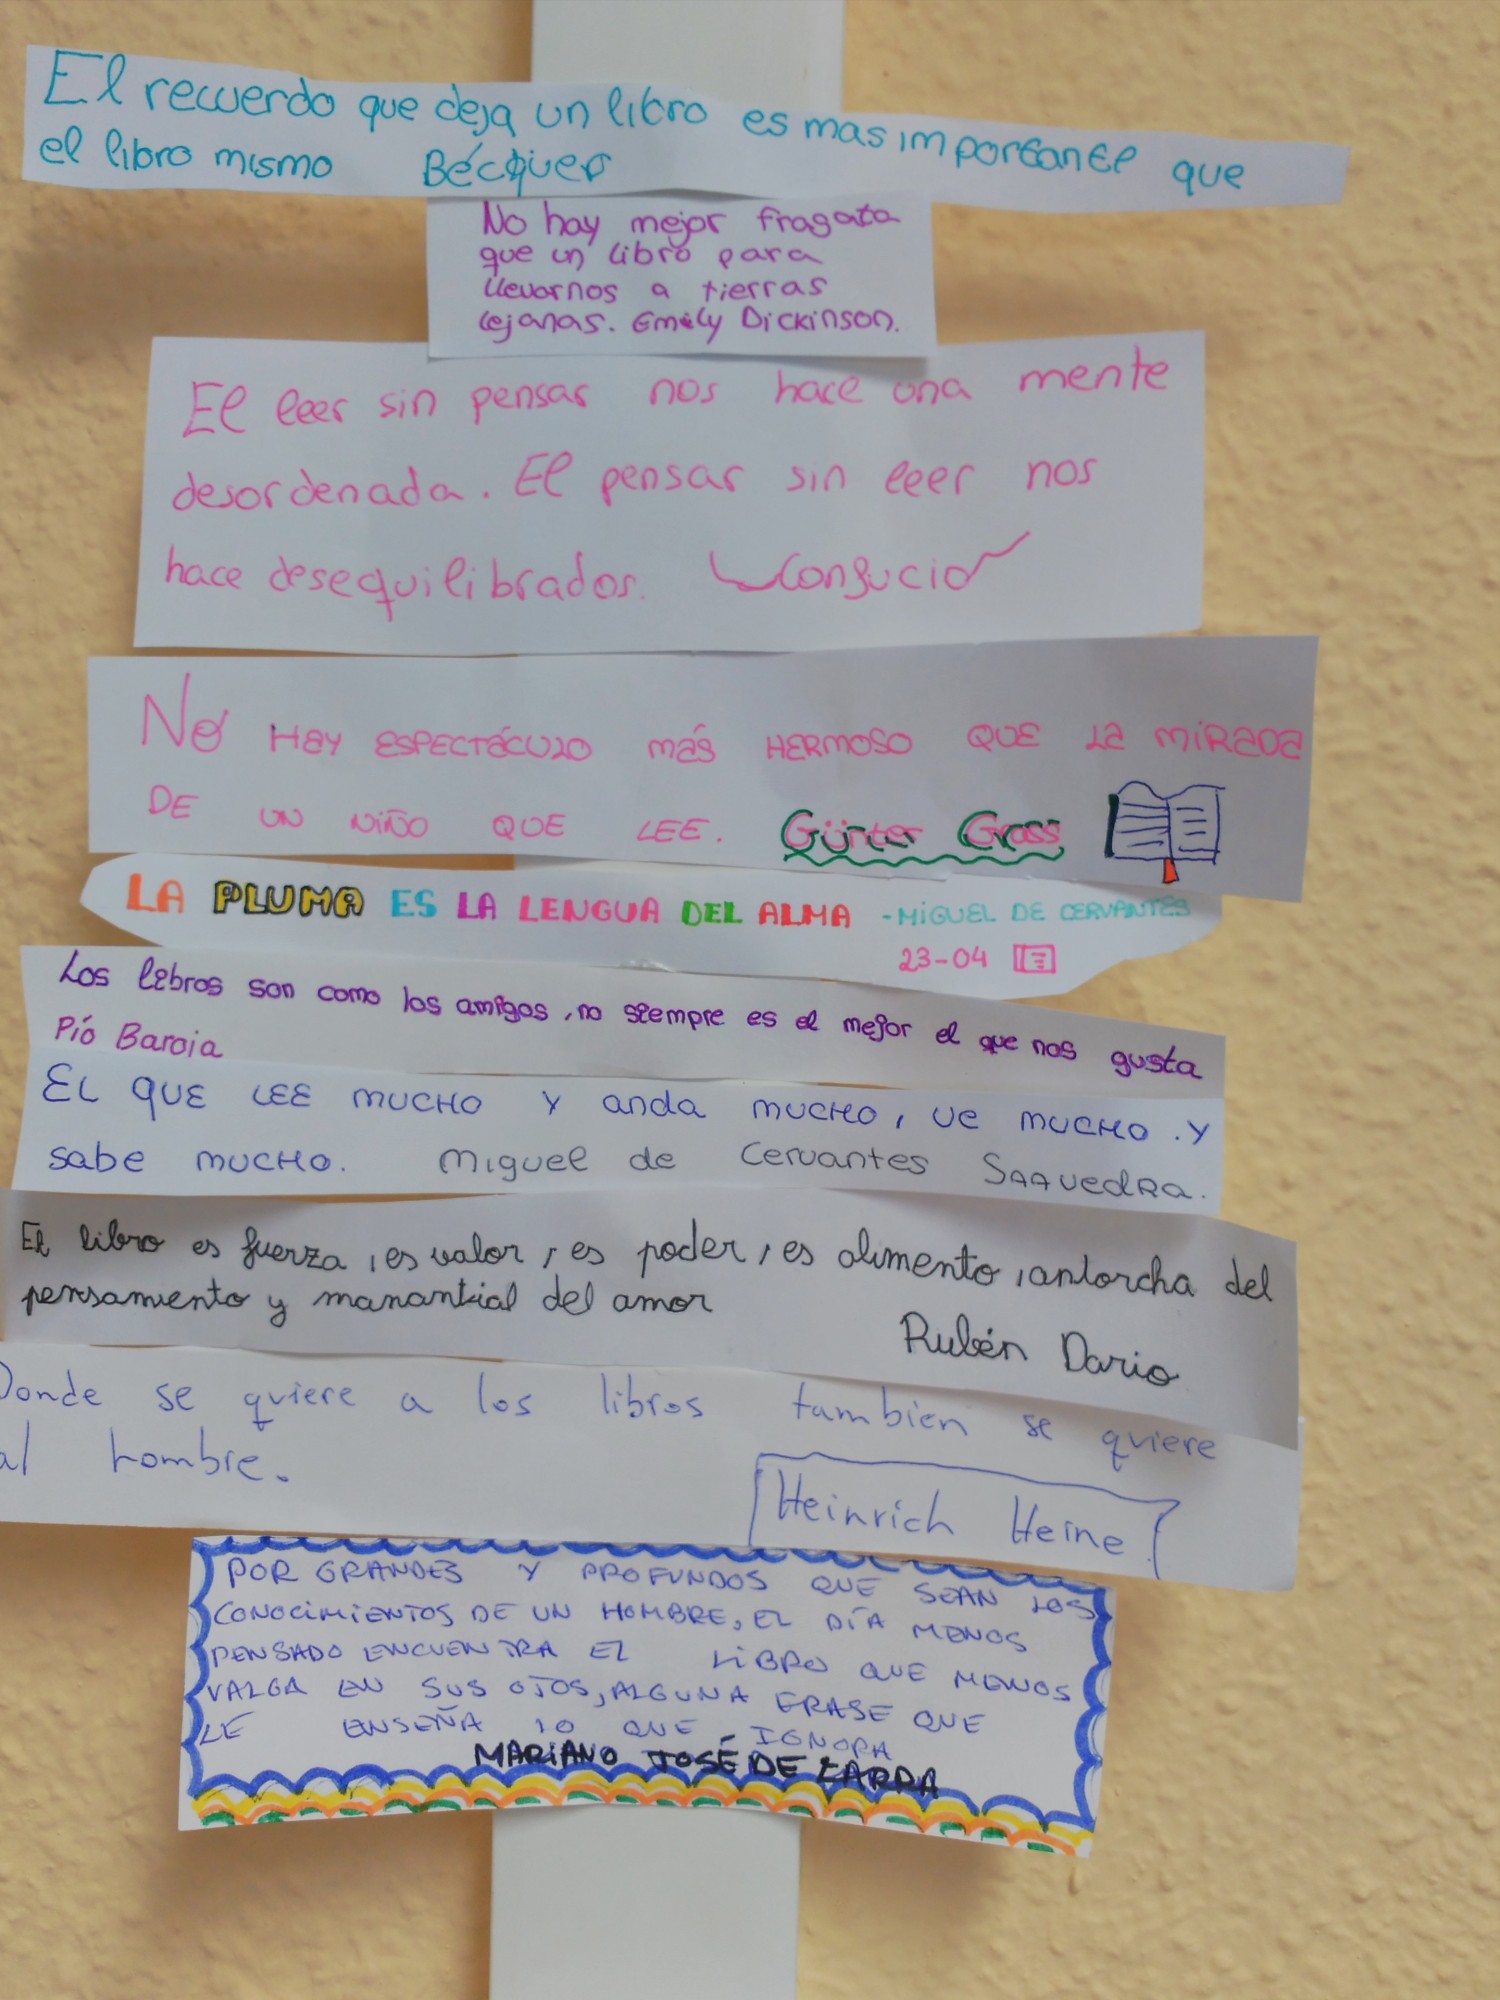 El recuerdo que deja un libro es mas importante que
el libro mismo Bécquer
No hay mejor fragata
que un libro para
llevarnos a tierras
lejanas. Emily Dickinson.
El leer sin pensar nos hace una mente
desordenada. El pensar sin leer nos
hace desequilibrados. Confucio
NO HAY ESPECTÁCULO MÁS HERMOSO QUE LA MIRADA
DE UN NIÑO QUE LEE. Günter Grass
LA PLUMA ES LA LENGUA DEL ALMA - MIGUEL DE CERVANTES
23-04
Los libros son como los amigos, no siempre es el mejor el que nos gusta
Pío Baroja
EL QUE LEE MUCHO Y anda MUCHO, VE MUCHO. Y
sabe MUCHO. Miguel de Cervantes SAAVedRA.
El libro es fuerza, es valor, es poder, es alimento, antorcha del
pensamiento y manantial del amor
Rubén Dario
Donde se quiere a los libros tambien se quiere
al hombre.
Heinrich Heine
POR GRANDES Y PROFUNDOS QUE SEAN LOS
CONOCIMIENTOS DE UN HOMBRE, EL DÍA MENOS
PENSADO ENCUENTRA EL LIBRO QUE MENOS
VALGA EN SUS OJOS, ALGUNA FRASE QUE
LE ENSEÑA LO QUE IGNORA
MARIANO JOSÉ DE LARRA